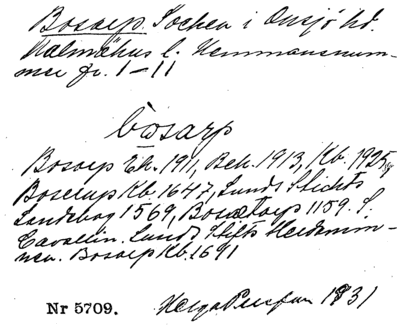 Bosarp. Socken i Onsjö hd.
Malmöhus l. Hemmansnum-
mer fr. 1-11
bosarp
Bosarp Ek. 1911, Beh. 1913, Kb. 1925,
Boserup Kb. 1647, Lunds Stichts
Landebog 1569, Bosætorp 1159. S:
Cavallin. Lunds Stifts Herdamin-
nen. Bosarp Kb. 1691
Nr 5709. Helge 1931